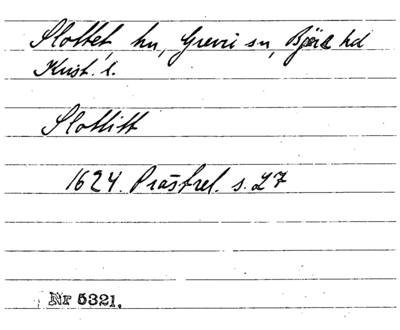 Slottet, hn, Grevie sn, Bjäre hd
Krist. l.
Slottitt
1624. Prästrel. s. 27
Nr 5321.